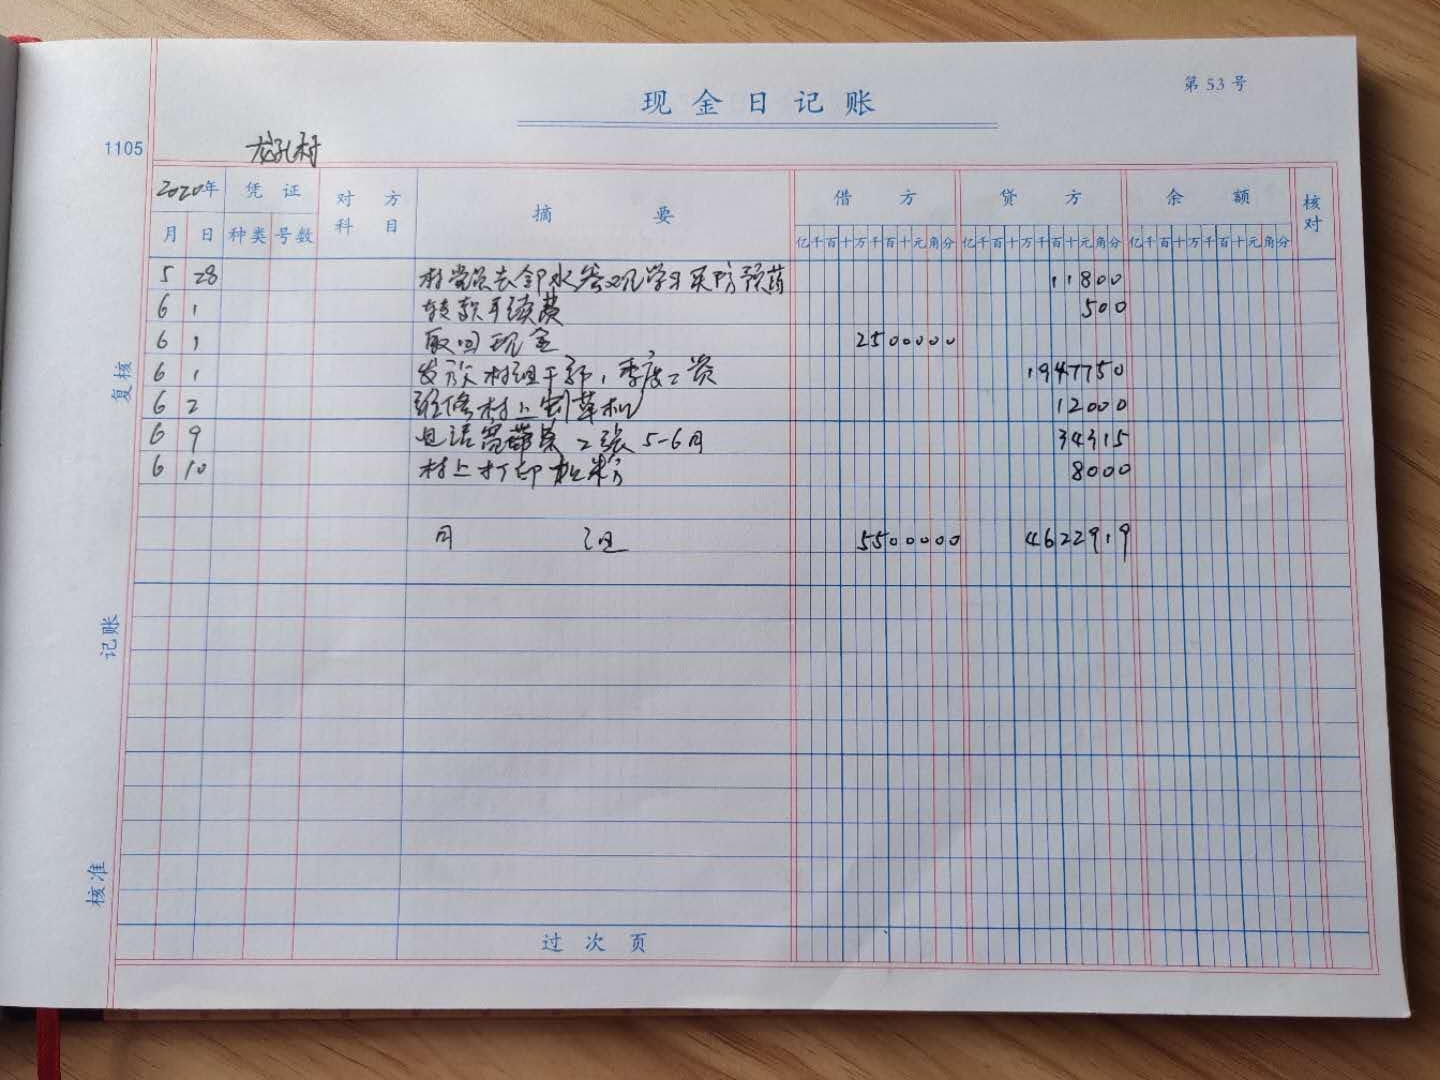 现金日记账
第 53 号
1105
龙孔村
2020年 凭证 对方科目 摘要 借方 贷方 余额 核对
月 日 种类 号数 亿千百十万千百十元角分 亿千百十万千百十元角分 亿千百十万千百十元角分
5 28 村党员去邻水参观学习买防预药 11800
6 1 转款手续费 500
6 1 取回现金 2500000
6 1 发放村组干部1季度工资 1947750
6 2 维修村上割草机 12000
6 9 电话宽带费 2张 5-6月 34315
6 10 村上打印机粉 8000
月 5500000 4622919
复核
记账
核准
过次页